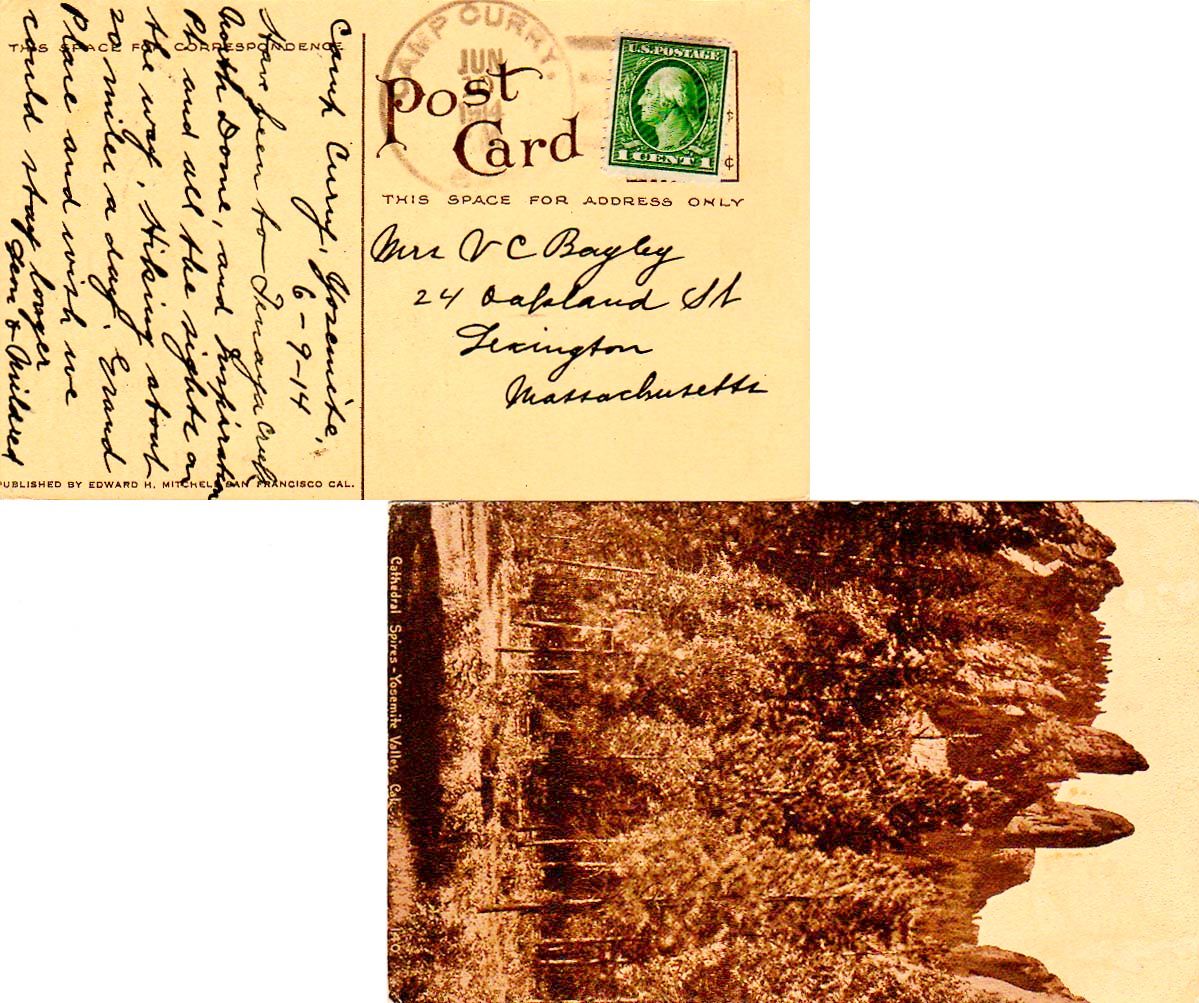 THIS SPACE FOR CORRESPONDENCE
Camp Curry, Yosemite,
6-9-14
Have been to Tenaya Creek
North Dome, and Inspiration
Pt and all the sights on
the way, Hiking about
20 miles a day. Grand
Place and wish we
could stay longer
& Mildred
PUBLISHED BY EDWARD H. MITCHELL SAN FRANCISCO CAL.
CAMP CURRY,
JUN
1914
U.S. POSTAGE
1 CENT 1
¢
Post
Card
THIS SPACE FOR ADDRESS ONLY
Mrs V C Bayley
24 Oakland St
Lexington
Massachusetts
Cathedral Spires - Yosemite Valley, Cal.